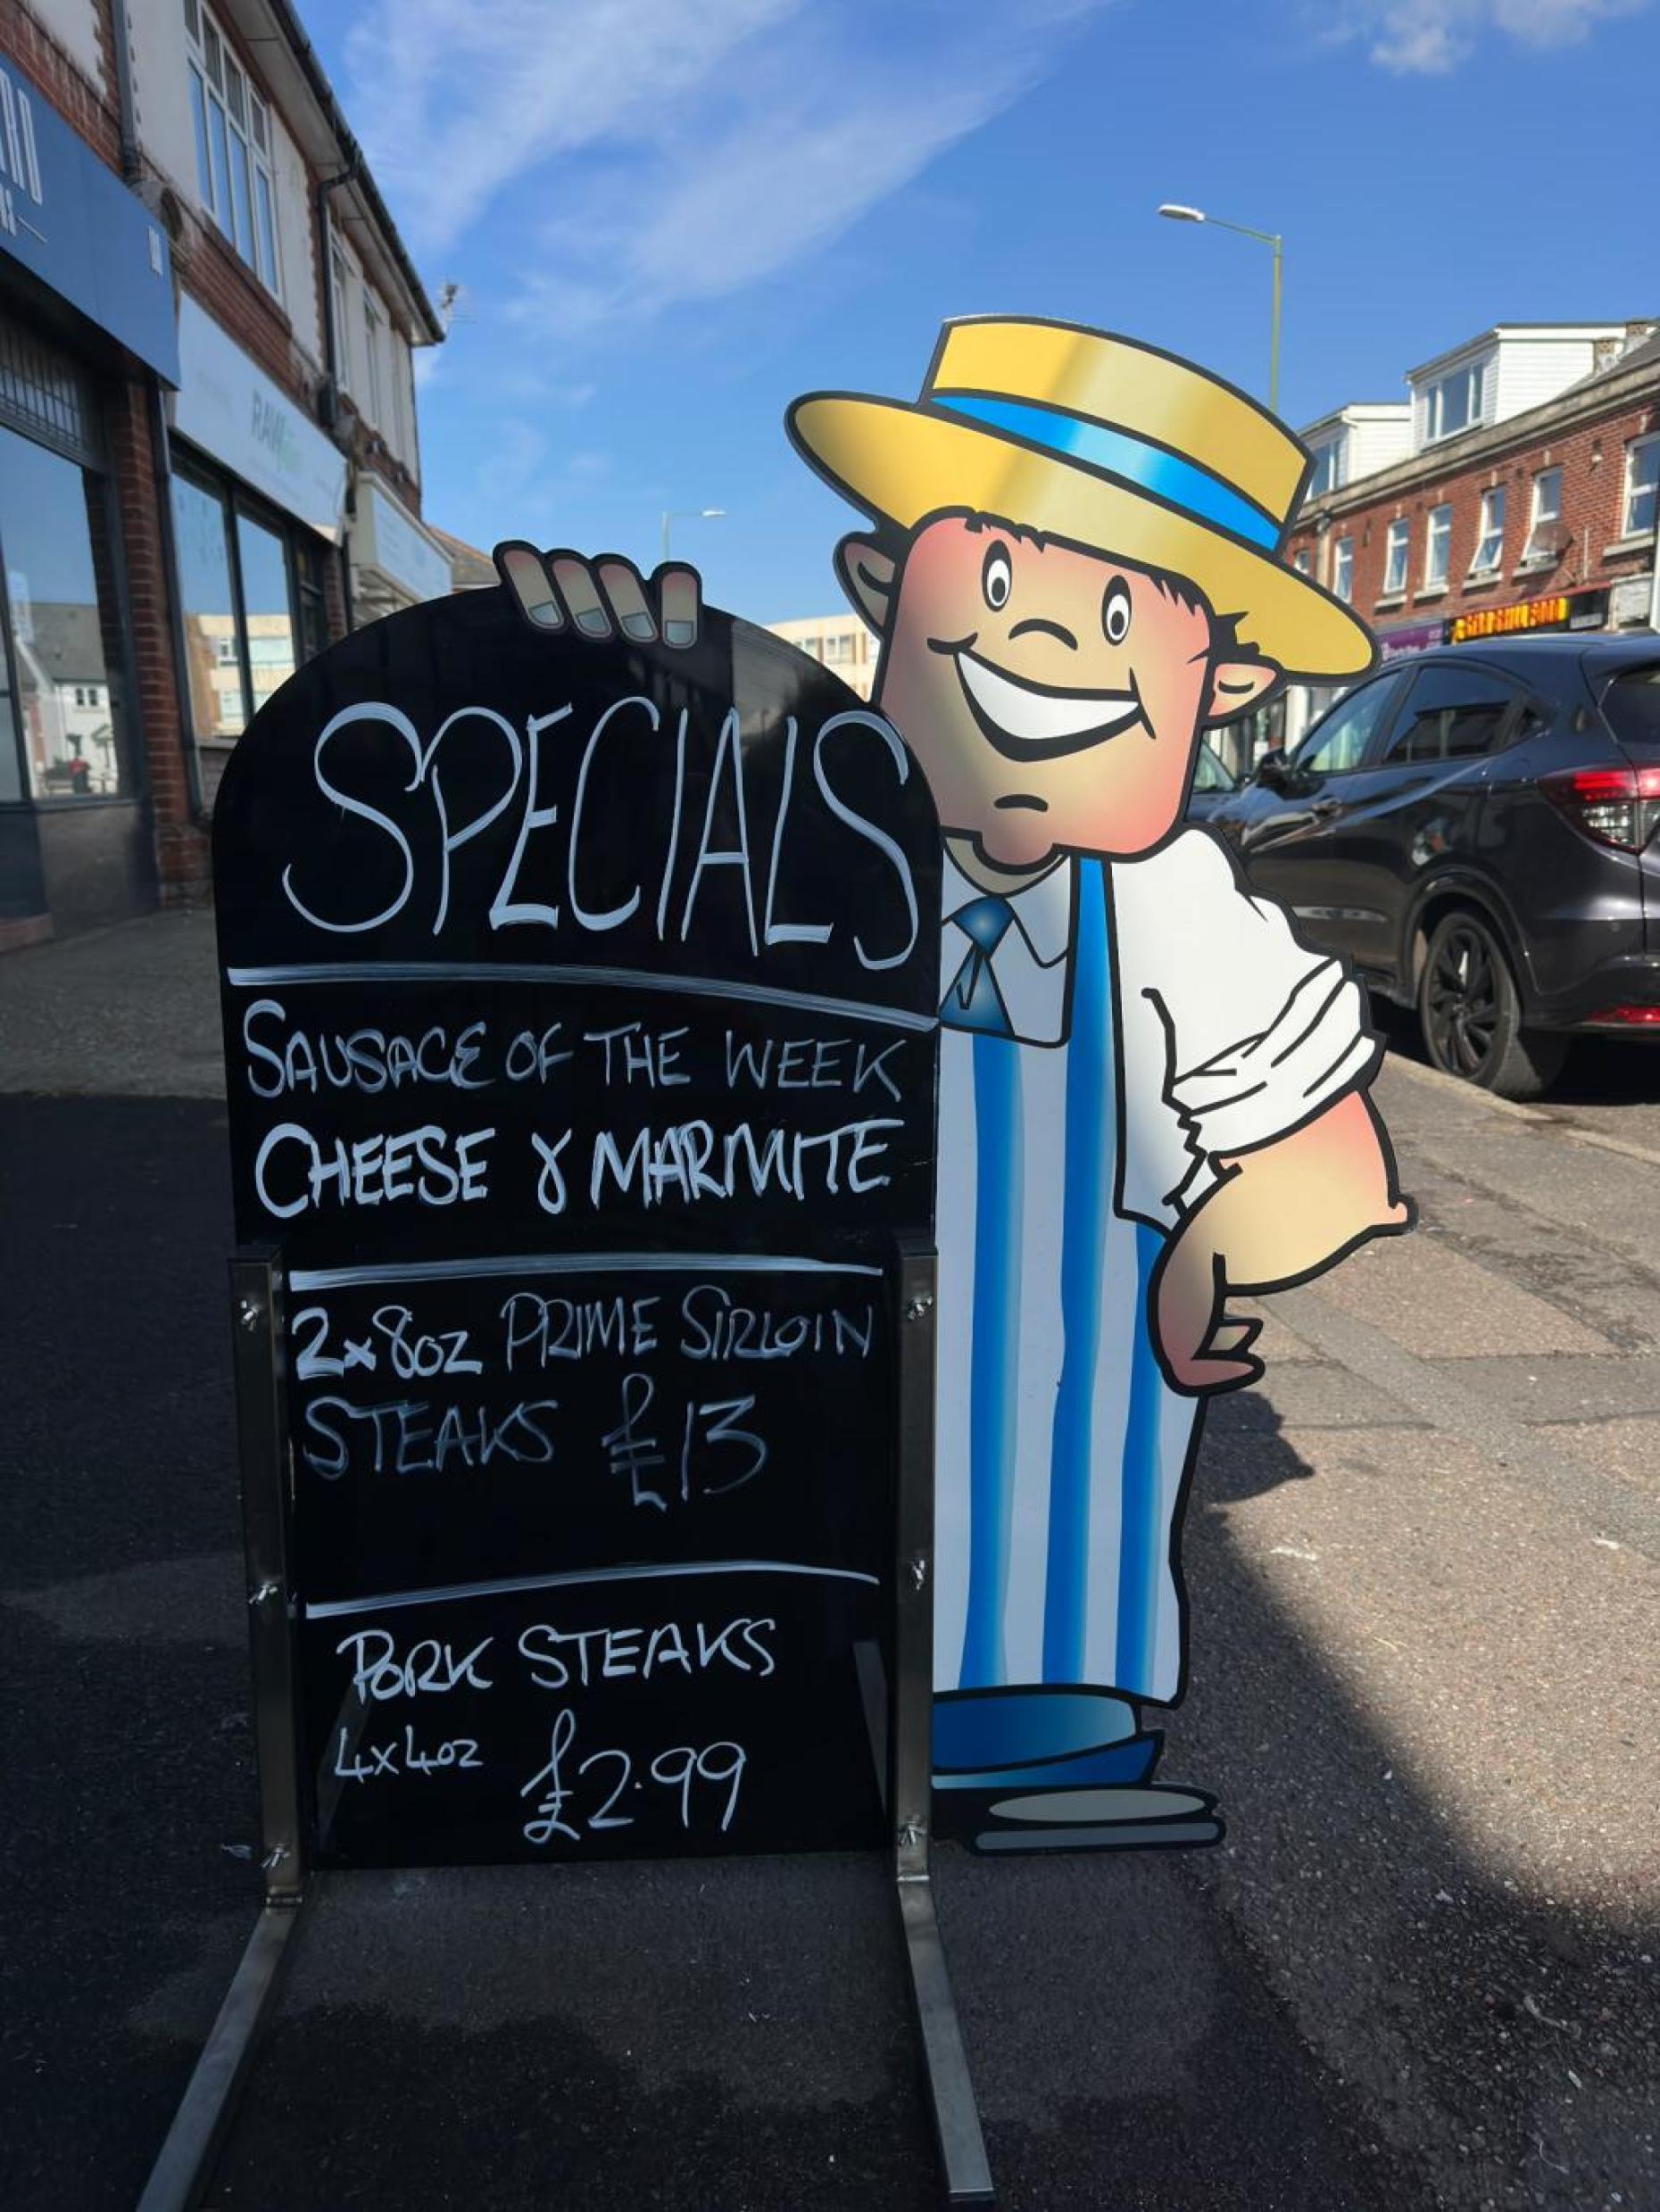 SPECIALS
SAUSAGE OF THE WEEK
CHEESE & MARMITE
2x8oz PRIME SIRLOIN
STEAKS £13
PORK STEAKS
4x4oz £2.99
RAW